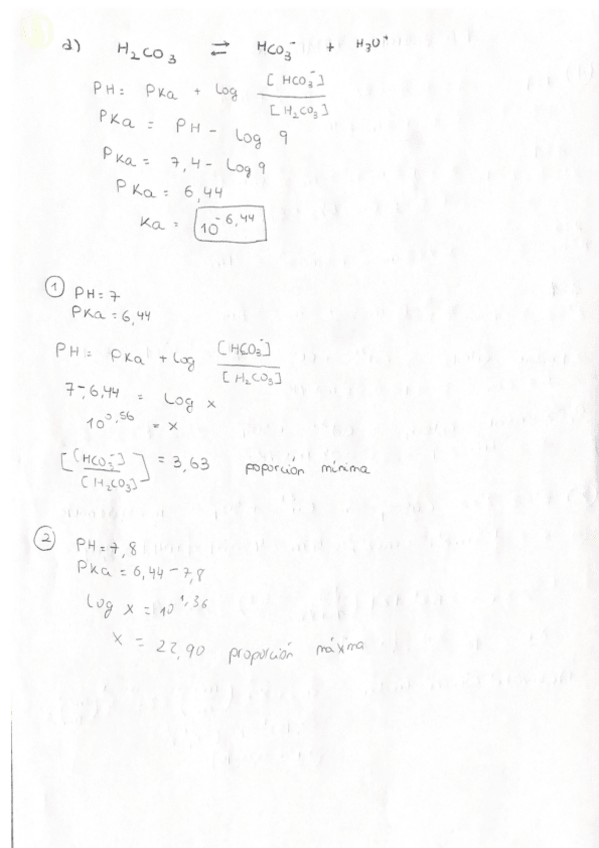 d) H₂CO₃ ⇄ HCO₃⁻ + H₃O⁺
PH= PKa + log [HCO₃⁻] / [H₂CO₃]
PKa = PH - log 9
PKa = 7,4 - log 9
PKa = 6,44
Ka = 10⁻⁶,⁴⁴
① PH=7
PKa = 6,44
PH= PKa + log [HCO₃⁻] / [H₂CO₃]
7-6,44 = log x
10⁰,⁵⁶ = x
[[HCO₃⁻] / [H₂CO₃]] = 3,63 poporción mínima
② PH=7,8
PKa = 6,44-7,8
log x = 10¹,³⁶
x = 22,90 proporción máxima